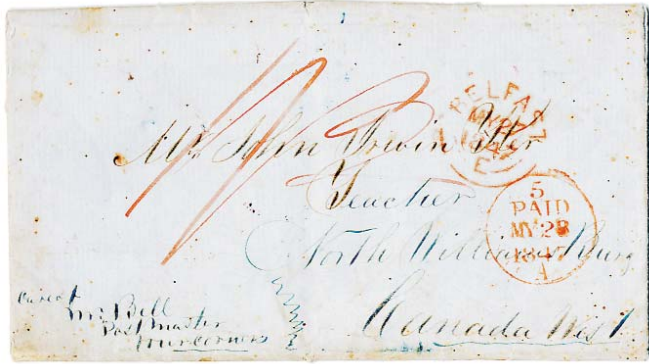 BELFAST
MY 27
1847
E
Mr. John Irwin
Teacher
5
PAID
MY 28
1847
A
North Williamsburg
Canada West
Care of
Mr Bell
Post Master